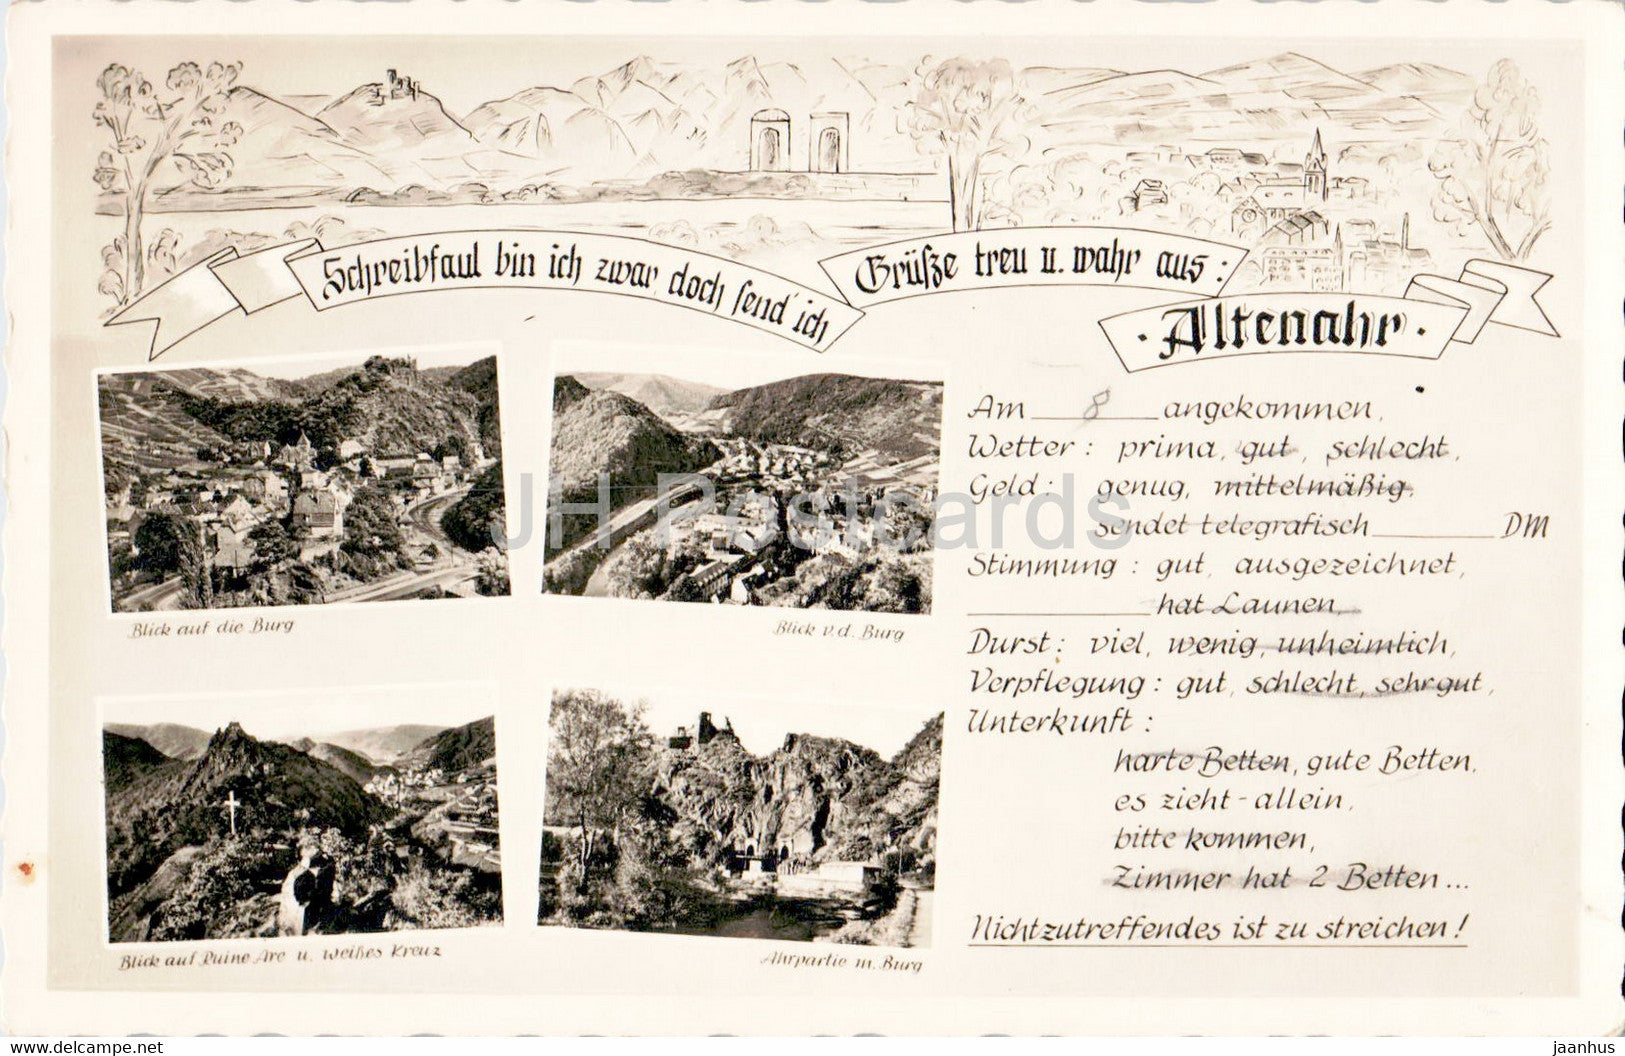 Schreibfaul bin ich zwar, doch send' ich
Grüße treu u. wahr aus:
· Altenahr ·
Am 8 angekommen,
Wetter: prima, gut, schlecht,
Geld: genug, mittelmäßig,
sendet telegrafisch ______ DM
Stimmung: gut, ausgezeichnet,
______ hat Launen,
Durst: viel, wenig, unheimlich,
Verpflegung: gut, schlecht, sehr gut,
Unterkunft:
harte Betten, gute Betten,
es zieht - allein,
bitte kommen,
Zimmer hat 2 Betten...
Nichtzutreffendes ist zu streichen!
Blick auf die Burg
Blick v. d. Burg
Blick auf Ruine Are u. weißes Kreuz
Ahrpartie m. Burg
JH Postcards
https://www.jhpostcards.com
jaanhus